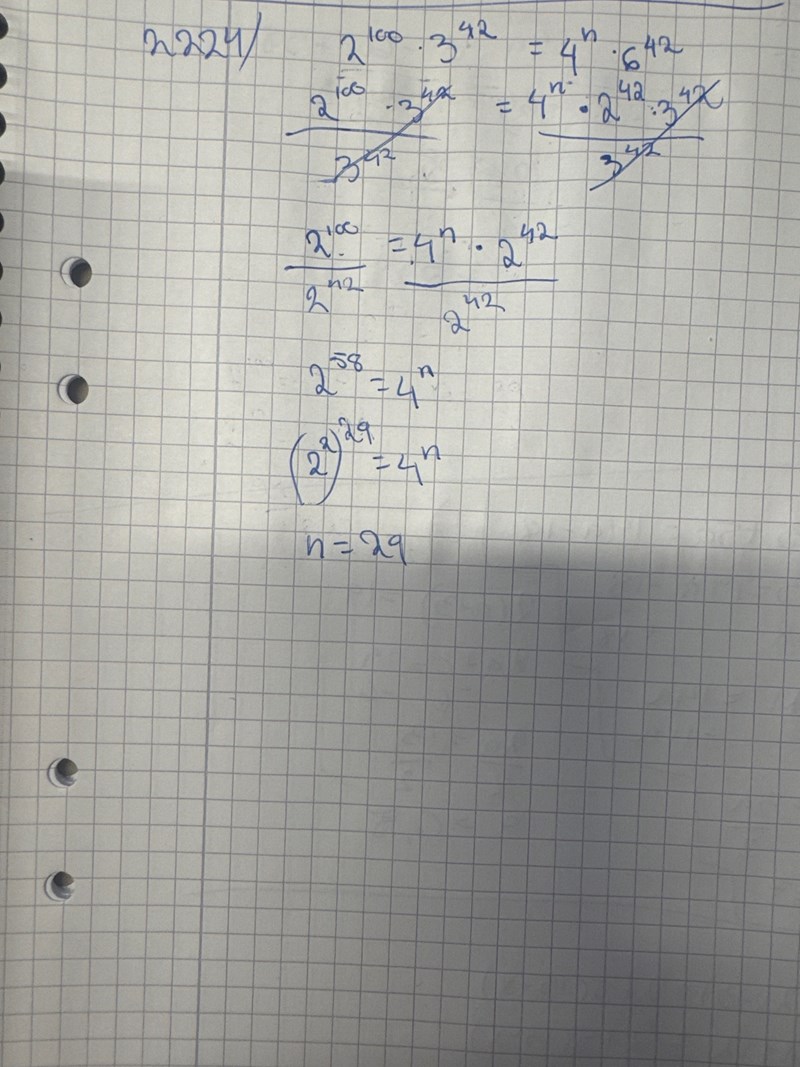 2224/ 2^100 · 3^42 = 4^n · 6^42
(2^100 · 3^42)/3^42 = (4^n · 2^42 · 3^42)/3^42
2^100/2^42 = (4^n · 2^42)/2^42
2^58 = 4^n
(2^2)^29 = 4^n
n = 29